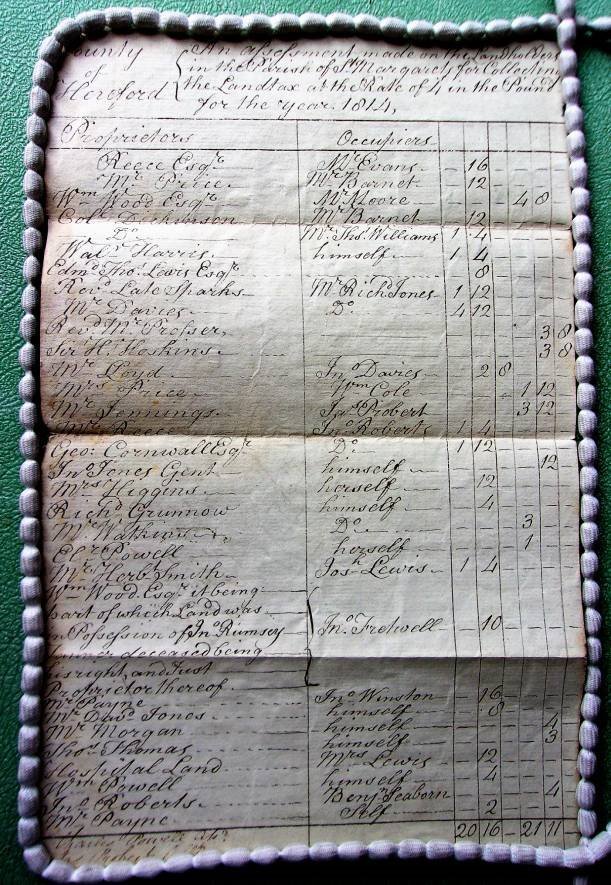 County of Hereford
An assessment made on the Landholders
in the Parish of St. Margarets for Collecting
the Landtax at the Rate of 4 in the Pound
for the year 1814,
Proprietors Occupiers
Reece Esqre Mr. Evans 16
Mrs. Price Mr. Barnet 12
Wm. Wood Esqre Mr. Moore 4 8
Coll. Dickinson Mr. Barnet 12
Do. Mr. Thos. Williams 1 4
Walr. Harris himself 1 4
Edmd. Tho. Lewis Esqre 8
Revd. Late Sparks Mr. Richd. Jones 1 12
Mr. Davies Do. 4 12
Revd. Mr. Prosser, 3 8
Sir H. Hoskins 3 8
Mr. Lloyd Jno. Davies 2 8
Mrs. Price Wm. Cole 1 12
Mr. Jennings Jas. Probert 3 12
Mr. Reece Jno. Roberts 1 4
Geo: Cornwall Esqr. Do. 1 12
Jno. Jones Gent himself 12
Mrs. Higgins herself 12
Richd. Grunnow himself 4
Mr. Watkins Do. 3
Elr. Powell herself 1
Mr. Herbt. Smith Jos. Lewis 1 4
Wm. Wood Esqr. it being
part of which Land was
in Possession of Jno. Rumsey Jno. Fretwell 10
deceased being
his right, and just
Proprietor thereof
Mr. Payne Jno. Winston 16
Mr. David Jones himself 8
Mr. Morgan himself 4
Thos. Thomas himself 3
Hospital Land Mrs. Lewis 12
Wm. Powell himself 4
Jno. Roberts Benj. Seaborn 4
Mr. Payne Self 2
20 16 21 11